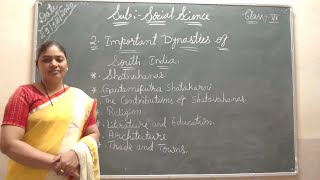 Sub:- Social Science
Class: VI
2. Important Dynasties of
South India.
* Shatavahanas
* Gautamiputra Shatakarni
* The Contributions of Shatavahanas.
* Religion
* Literature and Education.
* Architecture
* Trade and Towns.